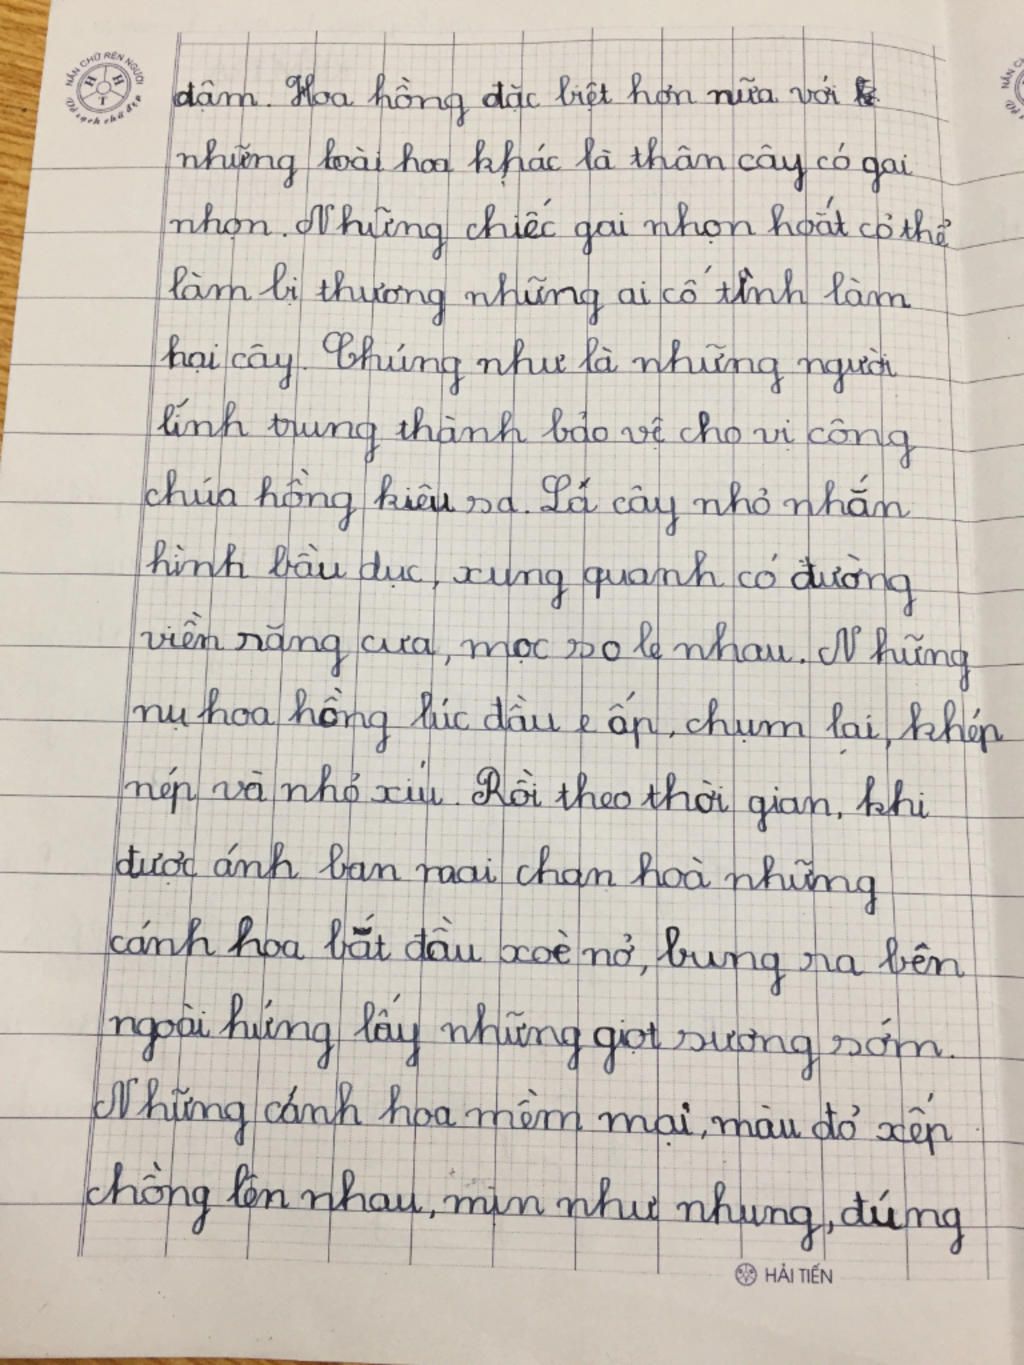 NẮN CHỮ RÈN NGƯỜI
H H T
Vở sạch chữ đẹp
đậm. Hoa hồng đặc biệt hơn nữa với
những loài hoa khác là thân cây có gai
nhọn. Những chiếc gai nhọn hoắt có thể
làm bị thương những ai cố tình làm
hại cây. Chúng như là những người
lính trung thành bảo vệ cho vị công
chúa hồng kiêu sa. Lá cây nhỏ nhắn
hình bầu dục, xung quanh có đường
viền răng cưa, mọc so le nhau. Những
nụ hoa hồng lúc đầu e ấp, chụm lại, khép
nép và nhỏ xíu. Rồi theo thời gian, khi
được ánh ban mai chan hoà những
cánh hoa bắt đầu xoè nở, bung ra bên
ngoài hứng lấy những giọt sương sớm.
Những cánh hoa mềm mại, màu đỏ xếp
chồng lên nhau, mịn như nhung, đứng
HẢI TIẾN